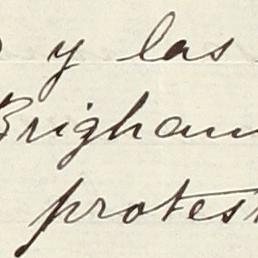 y las
Brigham
protest